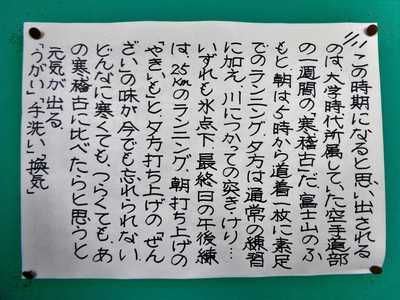 この時期になると思い出される
のは、大学時代所属していた空手道部
の一週間の「寒稽古」だ。富士山のふ
もと、朝は5時から道着一枚に素足
でのランニング、夕方は通常の練習
に加え、川につかっての突き・けり…
いずれも氷点下。最終日の午後練
は、25Kmのランニング。朝打ち上げの
「やきいも」と、夕方打ち上げの「ぜん
ざい」の味が今でも忘れられない。
どんなに寒くても、つらくても、あ
の寒稽古に比べたらと思うと
元気が出る。
「うがい」「手洗い」「換気」